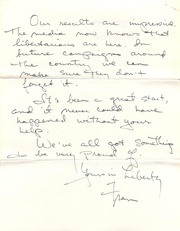 Our results are impressive.
The media now knows that
libertarians are here. In
future campaigns around
the country, we can
make sure they don't
forget it.
It's been a great start,
and it never could have
happened without your
help.
We've all got something
to be very proud of.
Yours in liberty,
Fran